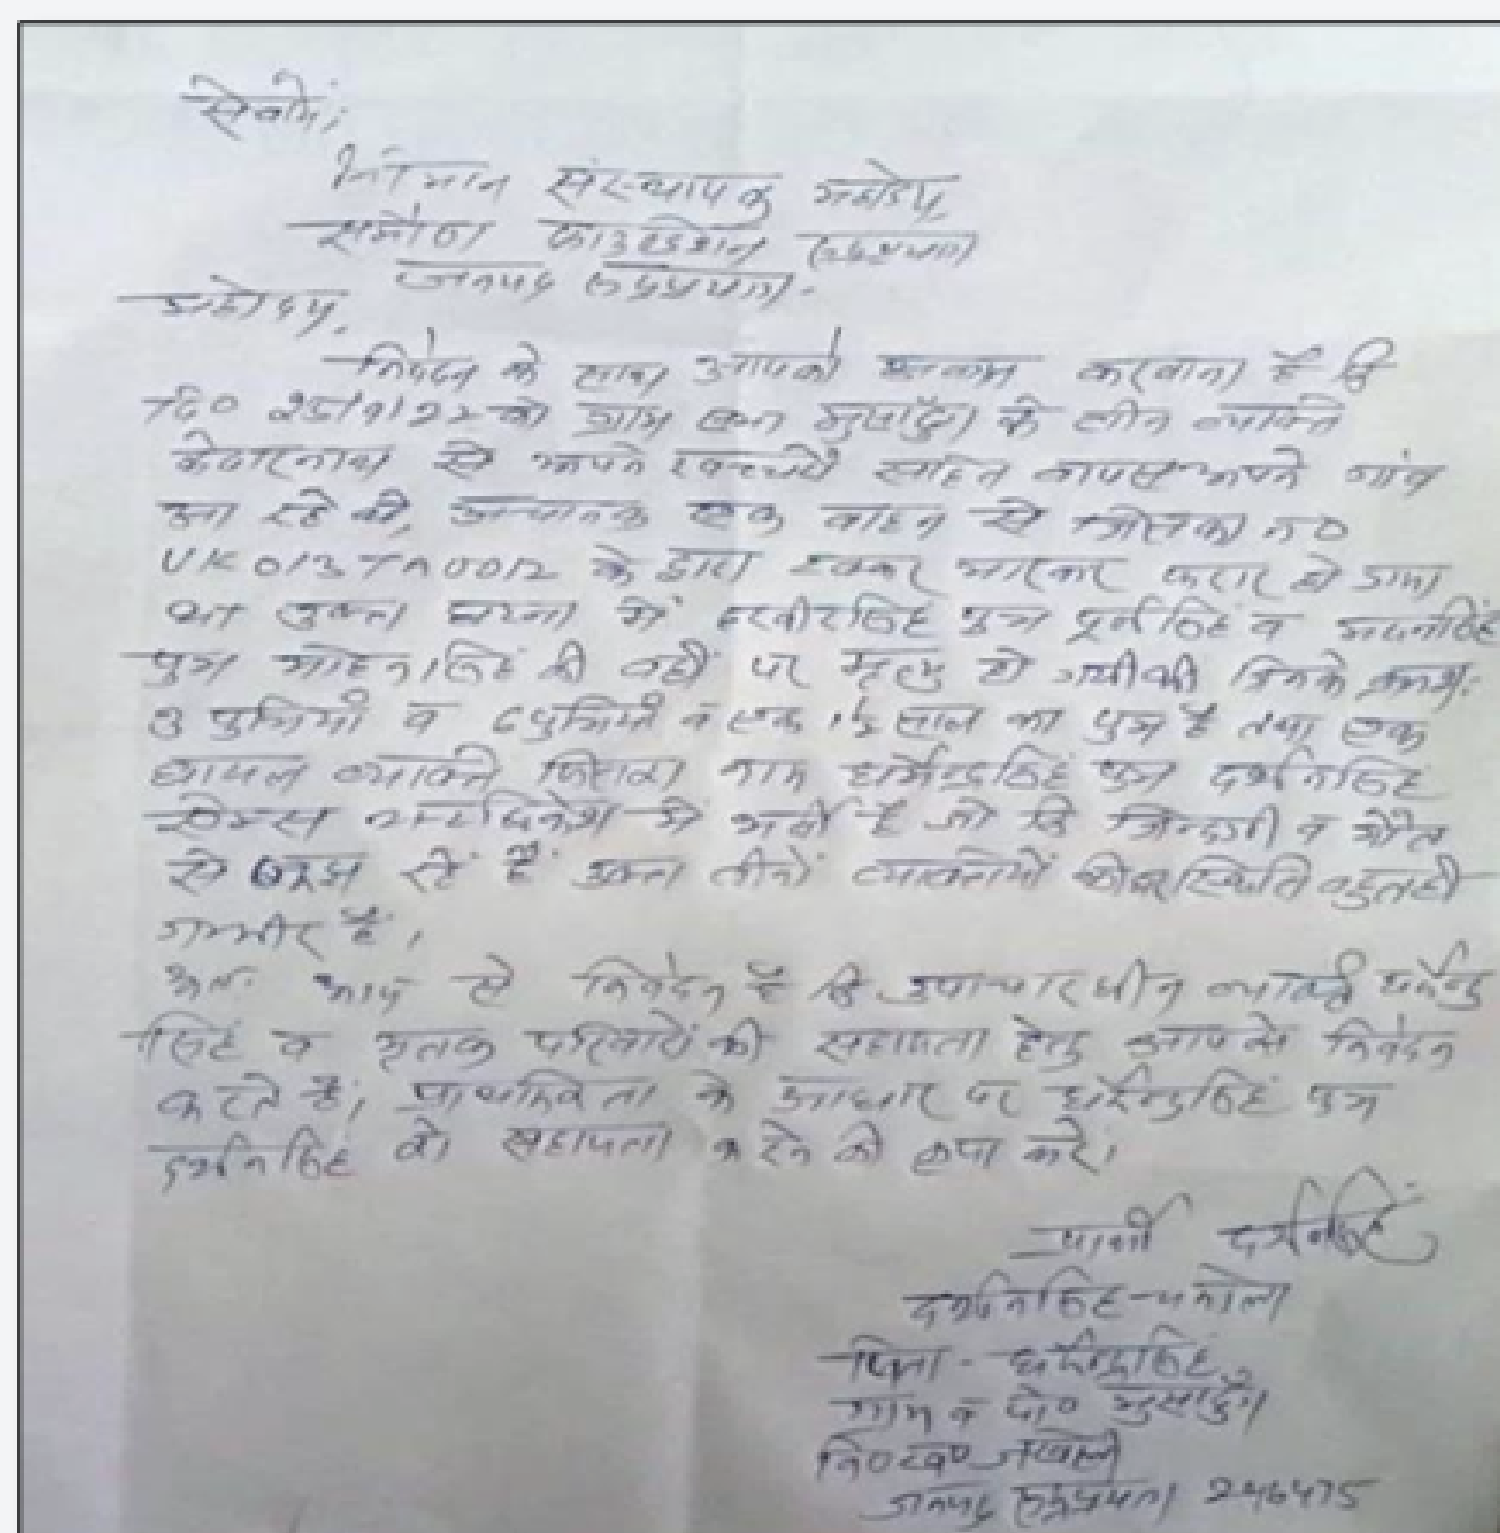 सेवामें,
श्रीमान संस्थापक महोदय,
फाउण्डेशन रुद्रप्रयाग
जनपद रुद्रप्रयाग.
महोदय,
निवेदन के साथ आपको अवगत करवाना है कि
को ग्राम के तीन व्यक्ति
केदारनाथ से अपने खच्चरों सहित वापस अपने गांव
आ रहे थे, अचानक एक वाहन से जिसका न०
के द्वारा टक्कर मारकर फरार हो गया
था उक्त घटना में पुत्र पूर्णसिंह व मदनसिंह
पुत्र मोहनसिंह की वहीं पर मृत्यु हो गयी थी जिनके क्रमशः
3 पुत्रियाँ व पुत्रियाँ व एक साल का पुत्र है तथा एक
घायल व्यक्ति जिसका नाम धर्मेन्द्रसिंह पुत्र दर्शनसिंह
एम्स ऋषिकेश में भर्ती है जो कि जिन्दगी व मौत
से जूझ रहें हैं उक्त तीनों व्यक्तियों की स्थिति बहुत ही
गम्भीर है।
अतः आप से निवेदन है कि उपचाराधीन व्यक्ति धर्मेन्द्र
सिंह व मृतक परिवारों की सहायता हेतु आपसे निवेदन
करते हैं, प्राथमिकता के आधार पर धर्मेन्द्रसिंह पुत्र
दर्शनसिंह को सहायता करने की कृपा करें।
प्रार्थी दर्शनसिंह
दर्शनसिंह
पिता - धर्मेन्द्रसिंह
ग्राम व पो०
वि०ख० जखोली
जनपद रुद्रप्रयाग 246475